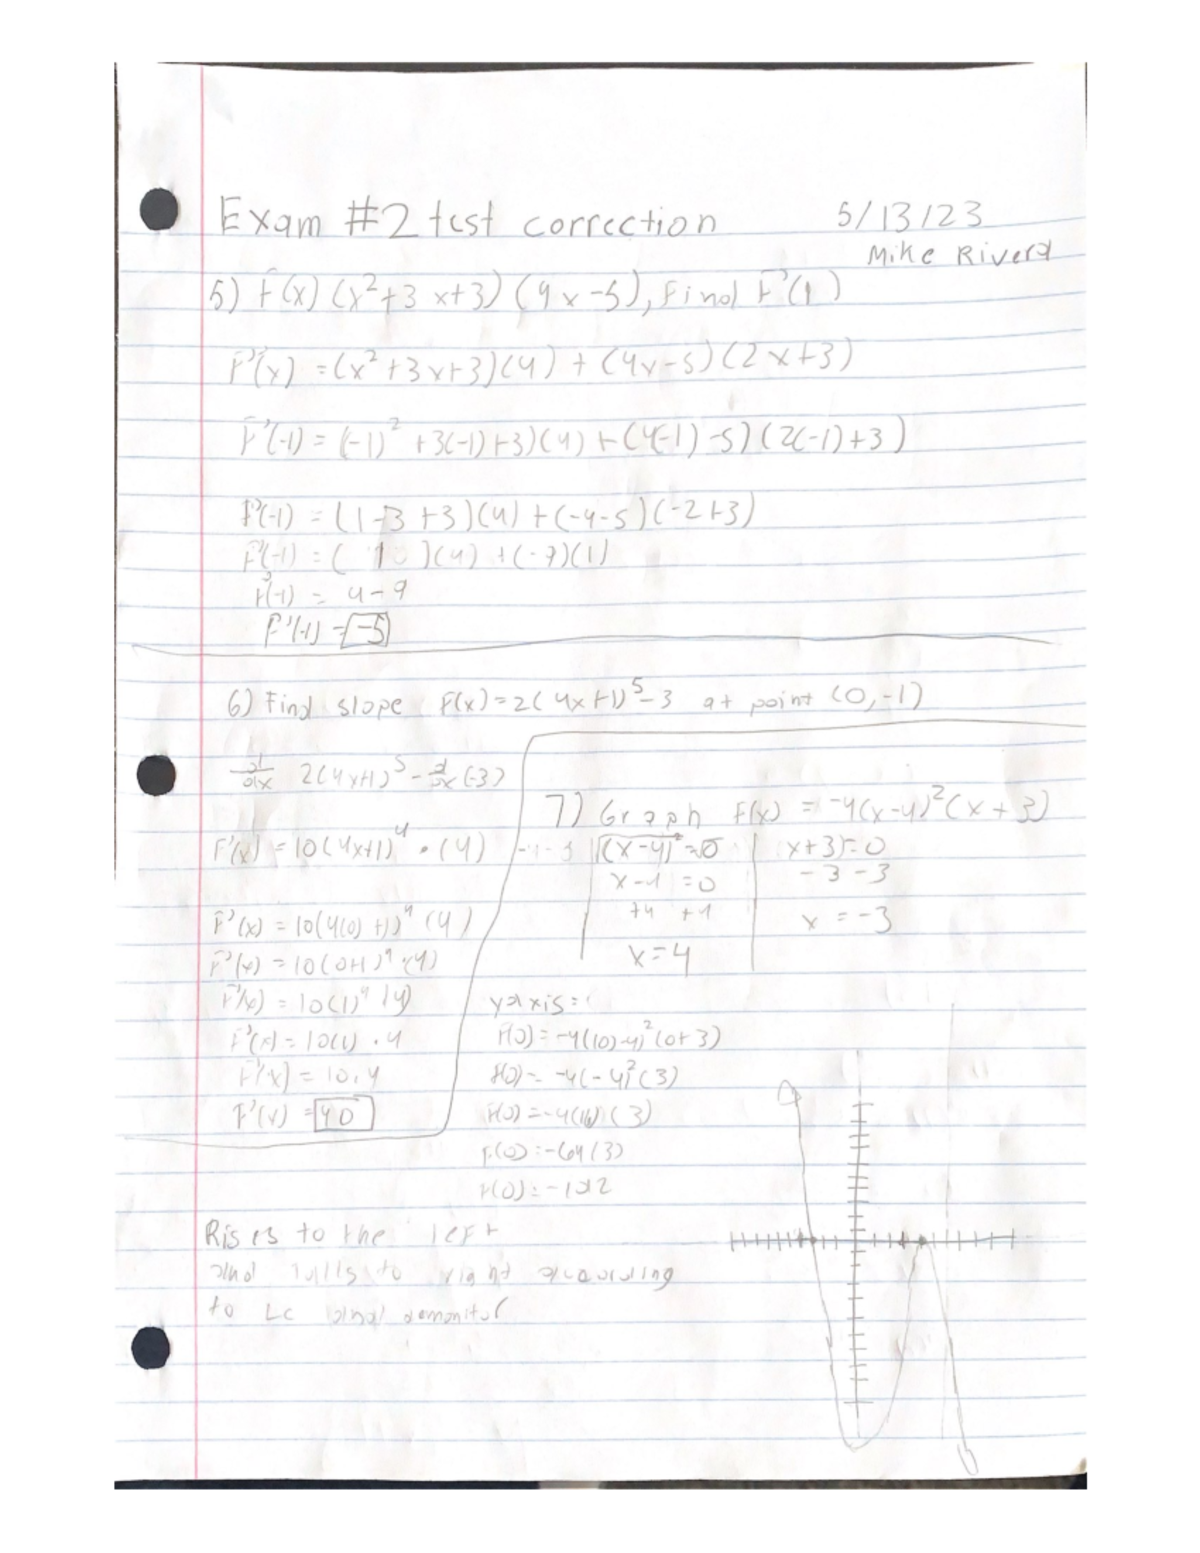 Exam #2 test correction 5/13/23
Mike Rivera
5) F(x) (x²+3x+3)(4x-5), Find F'(1)
F'(x) = (x²+3x+3)(4) + (4x-5)(2x+3)
F'(-1) = (-1)² +3(-1)+3)(4) + (4(-1)-5)(2(-1)+3)
F'(-1) = (1-3+3)(4) + (-4-5)(-2+3)
F'(-1) = ( 1 )(4) + (-9)(1)
F'(-1) = 4-9
F'(-1) = -5
6) Find slope F(x)=2(4x+1)⁵-3 at point (0,-1)
d/dx 2(4x+1)⁵ - d/dx (-3)
F'(x) = 10(4x+1)⁴ • (4)
F'(x) = 10(4(0)+1)⁴ (4)
F'(x) = 10(0+1)⁴ • (4)
F'(x) = 10(1)⁴ (4)
F'(x) = 10(1) • 4
F'(x) = 10.4
F'(x) = 40
7) Graph F(x) = -4(x-4)²(x+3)
(x-4)²=0 x+3=0
x-4 =0 -3 -3
+4 +4 x = -3
x=4
y axis =
F(0) = -4((0)-4)²(0+3)
F(0) = -4(-4)²(3)
F(0) = -4(16)(3)
F(0) = -64(3)
F(0) = -192
Rises to the left
and falls to right according
to LC and